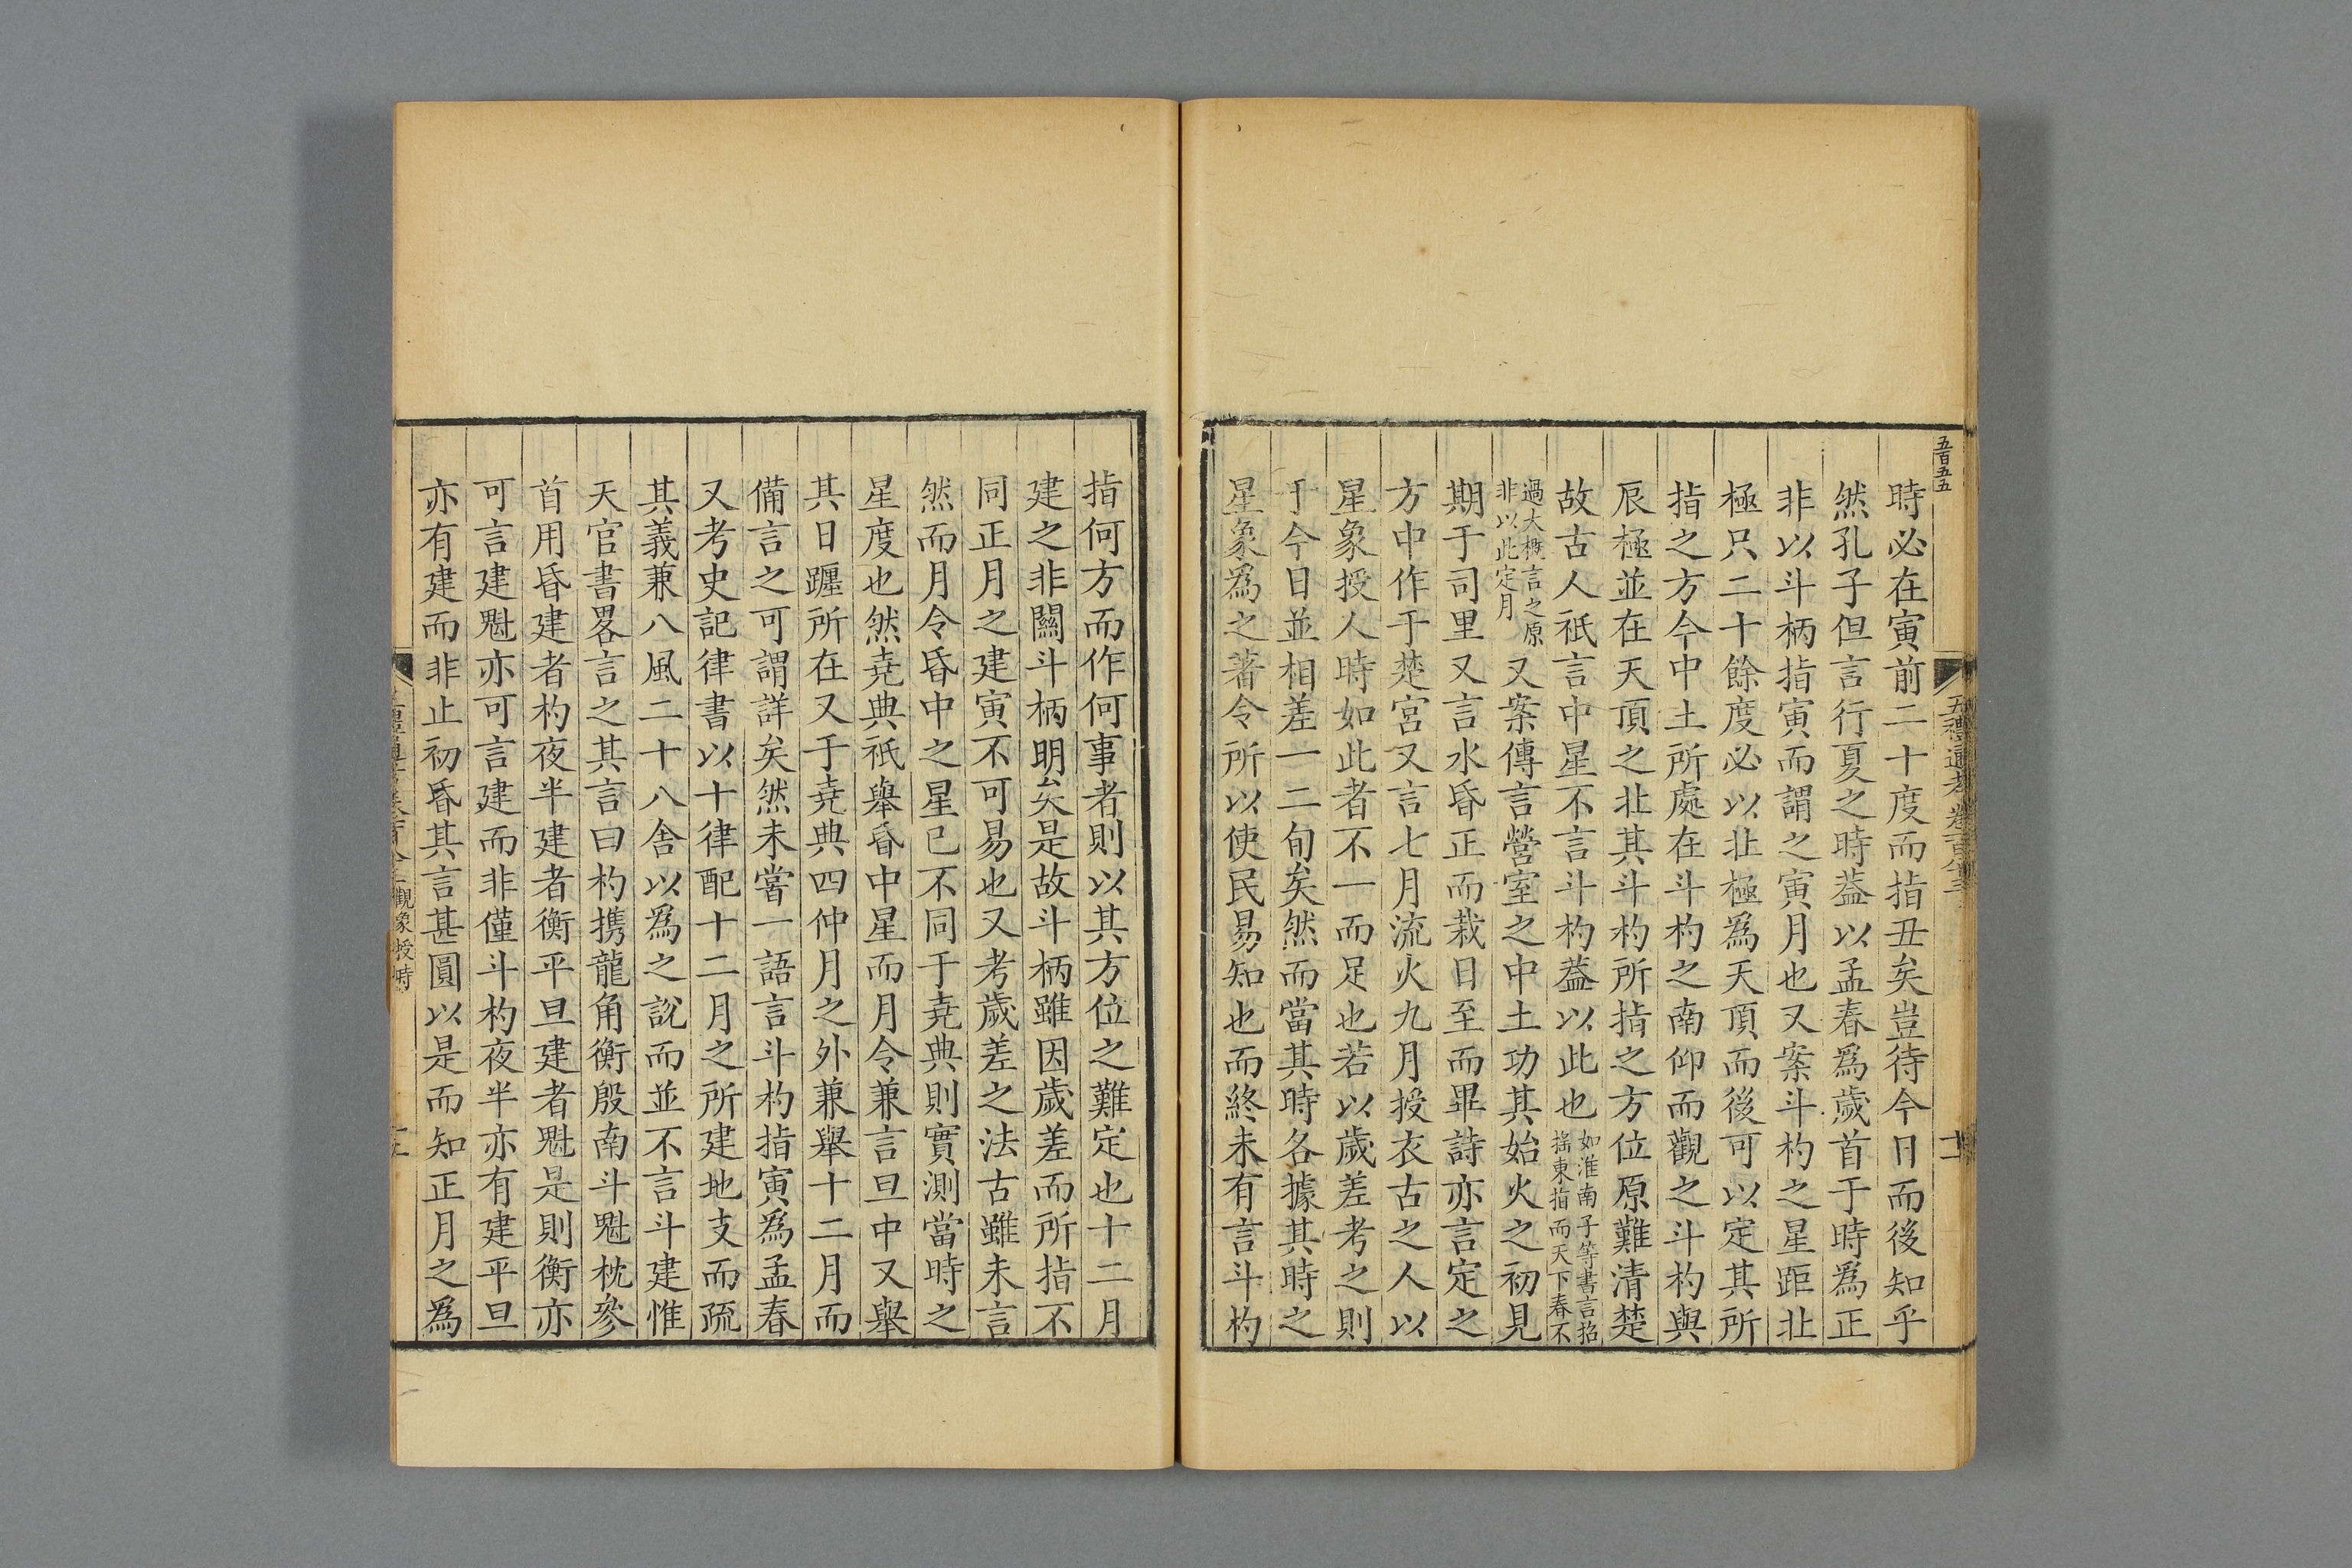 五百五五
五禮通考卷一百
時必在寅前二十度而指丑矣豈待今日而後知乎
然孔子但言行夏之時葢以孟春爲歲首于時爲正
非以斗柄指寅而謂之寅月也又案斗杓之星距北
極只二十餘度必以北極爲天頂而後可以定其所
指之方今中土所處在斗杓之南仰而觀之斗杓與
辰極並在天頂之北其斗杓所指之方位原難清楚
故古人祇言中星不言斗杓葢以此也如淮南子等書言招
搖東指而天下春不
過大槪言之原
非以此定月又案傳言營室之中土功其始火之初見
期于司里又言水昏正而栽日至而畢詩亦言定之
方中作于楚宮又言七月流火九月授衣古之人以
星象授人時如此者不一而足也若以歲差考之則
于今日並相差一二旬矣然而當其時各據其時之
星象爲之著令所以使民易知也而終未有言斗杓
指何方而作何事者則以其方位之難定也十二月
建之非關斗柄明矣是故斗柄雖因歲差而所指不
同正月之建寅不可易也又考歲差之法古雖未言
然而月令昏中之星已不同于堯典則實測當時之
星度也然堯典祇舉昏中星而月令兼言旦中又舉
其日躔所在又于堯典四仲月之外兼舉十二月而
備言之可謂詳矣然未嘗一語言斗杓指寅爲孟春
又考史記律書以十律配十二月之所建地支而疏
其義兼八風二十八舍以爲之說而並不言斗建惟
天官書畧言之其言曰杓携龍角衡殷南斗魁枕參
首用昏建者杓夜半建者衡平旦建者魁是則衡亦
可言建魁亦可言建而非僅斗杓夜半亦有建平旦
亦有建而非止初昏其言甚圓以是而知正月之爲
觀象授時